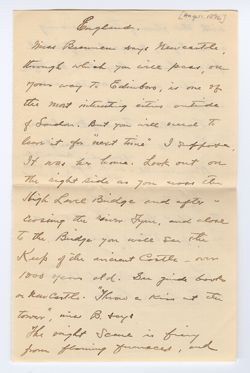 England. [Aug. 1896]
Miss Brennan says Newcastle,
through which you will pass, on
your way to Edinboro, is one of
the most interesting cities outside
of London. But you will need to
leave it for "next time" I suppose.
It was her home. Look out on
the right side as you cross the
High Level Bridge and after
crossing the River Tyne, and close
to the Bridge you will see the
Keep of the ancient Castle - over
1000 years old. See guide book
on Newcastle. "Throw a kiss at the
tower", Miss B. says
The night scene is fiery
from flaming furnaces, and